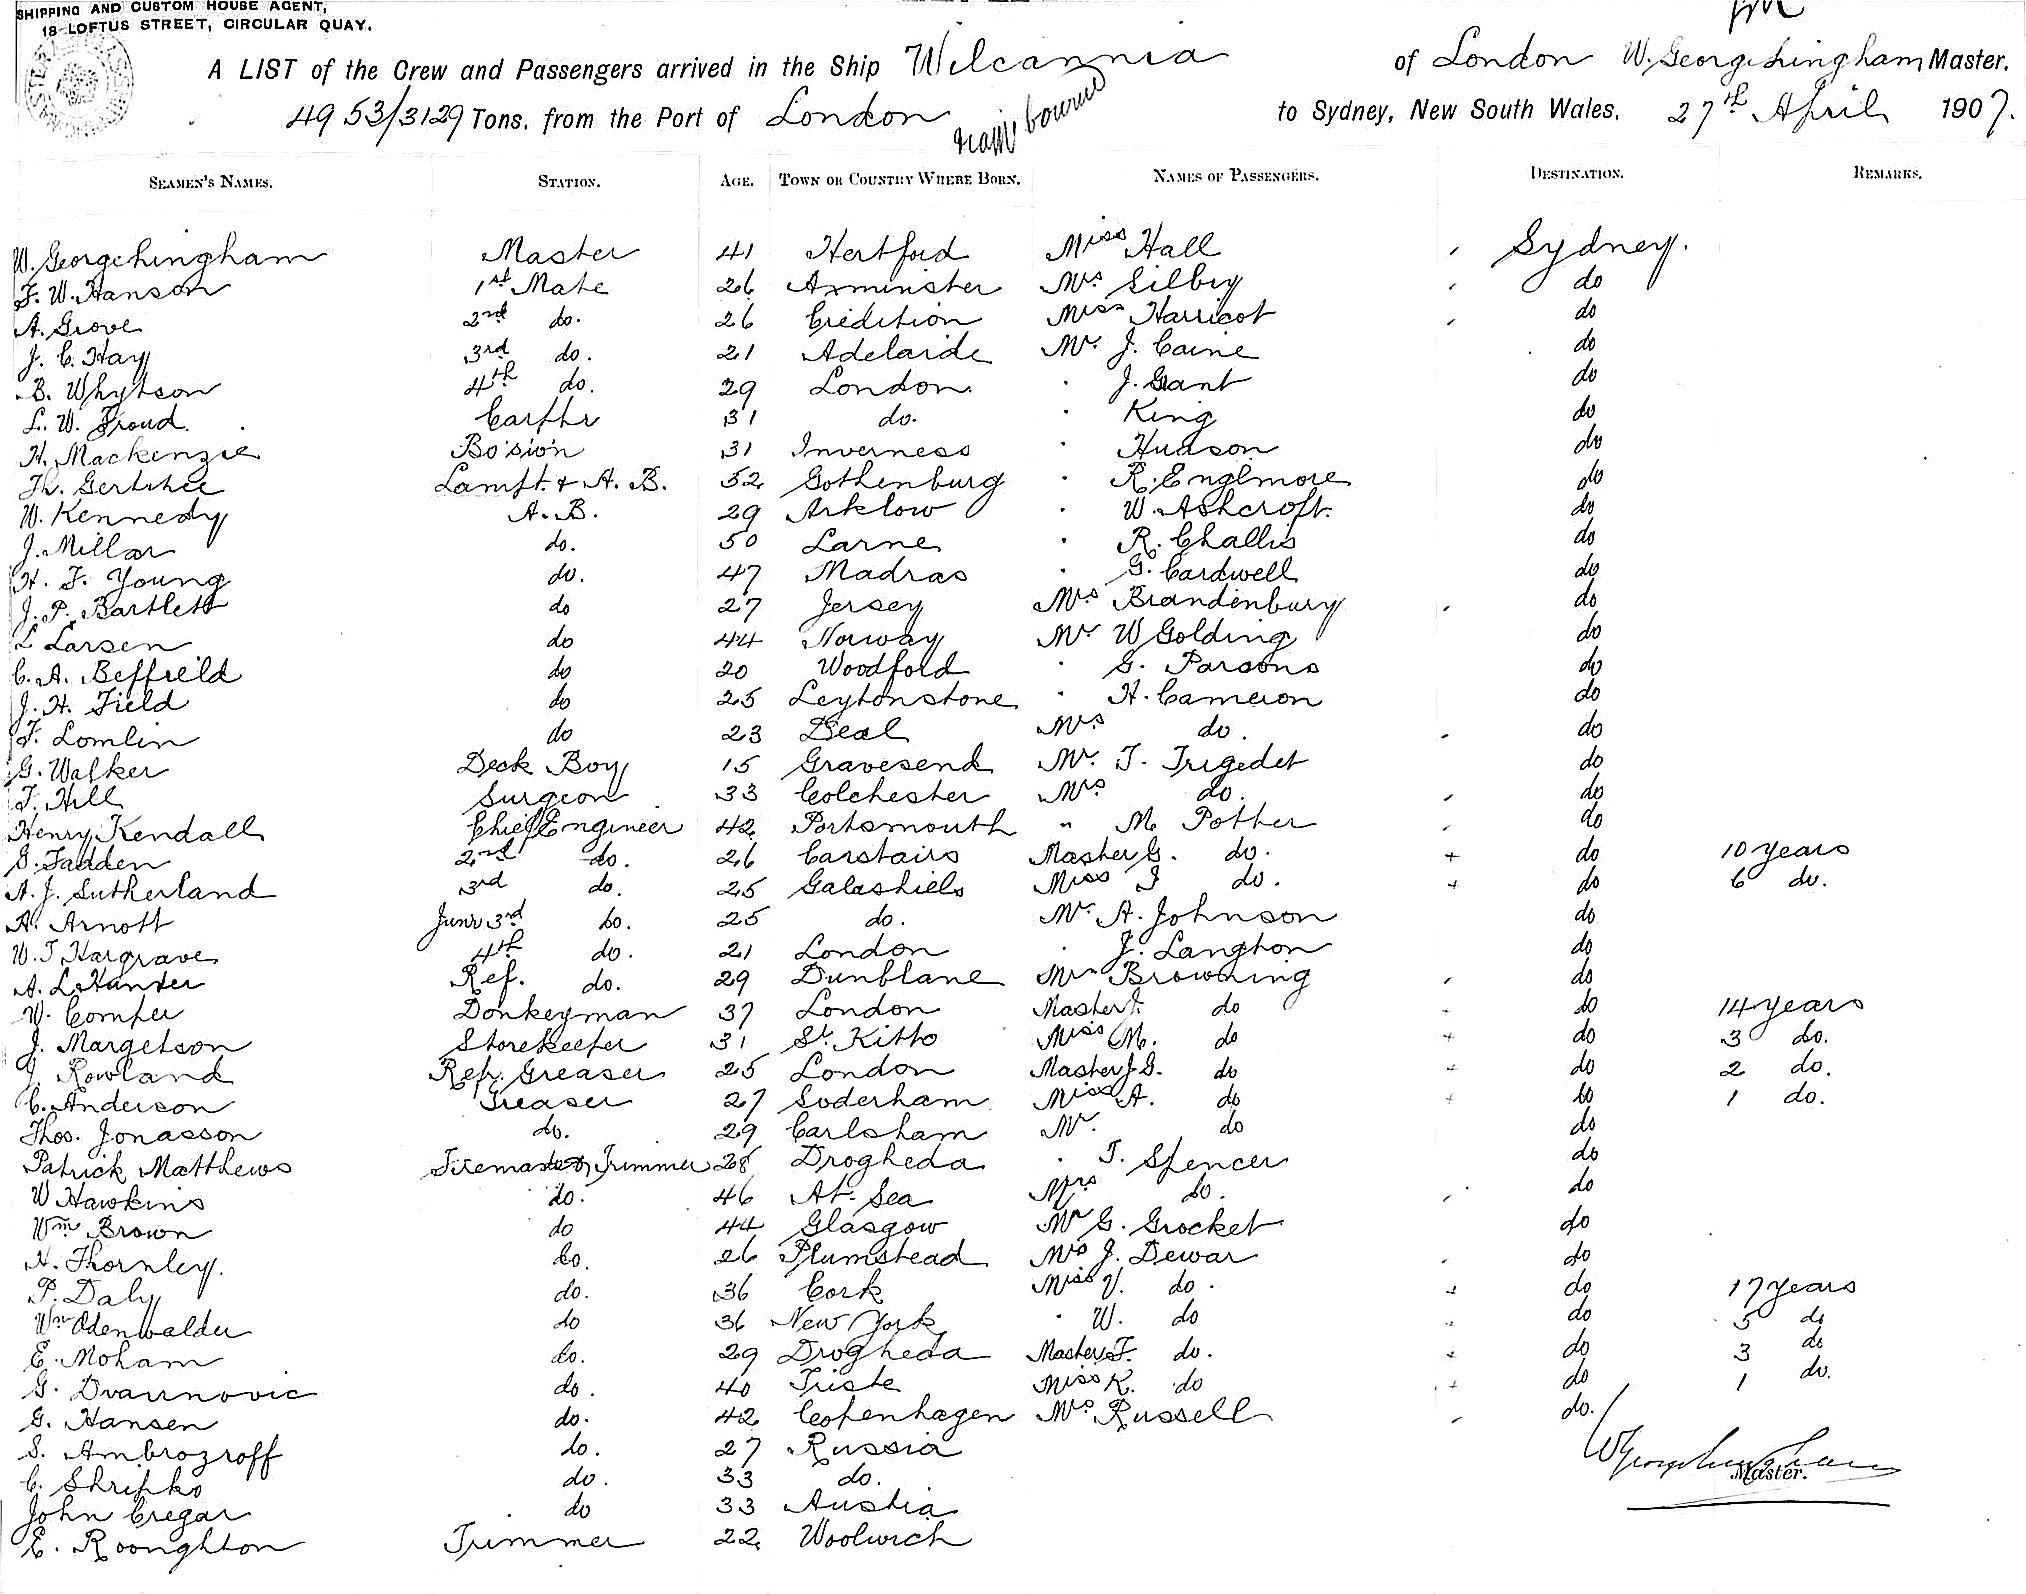 SHIPPING AND CUSTOM HOUSE AGENT,
18 LOFTUS STREET, CIRCULAR QUAY.
A LIST of the Crew and Passengers arrived in the Ship Wilcannia of London W. Georgehingham Master.
4953/3129 Tons, from the Port of London to Sydney, New South Wales, 27th April 1907.
SEAMEN'S NAMES. STATION. AGE. TOWN OR COUNTRY WHERE BORN. NAMES OF PASSENGERS. DESTINATION. REMARKS.
W. Georgehingham Master 41 Hertford Miss Hall Sydney.
F. W. Hanson 1st Mate 26 Axminster Mrs Silby do
A. Grove 2nd do. 26 Credition Miss Harricot do
J. C. Hay 3rd do. 21 Adelaide Mr. J. Caine do
B. Whytson 4th do. 29 London. " J. Grant do
L. W. Froud. Carptr 31 do. " King do
H. Mackenzie Bo'sion 31 Inverness " Hudson do
Th. Lampt. & A. B. 52 Gothenburg " R. Englmore do
W. Kennedy A. B. 29 Arklow " W. Ashcroft. do
J. Millar do. 50 Larne " R. Challis do
H. F. Young do. 47 Madras " G. Cardwell do
J. P. Bartlett do 27 Jersey Mrs Brandenbury do
L Larsen do 44 Norway Mr W Golding do
C. A. Beffield do 20 Woodford " G. Parsons do
J. H. Field do 25 Leytonstone " H. Cameron do
F. Lomlin do 23 Deal Mrs do. do
G. Walker Deck Boy 15 Gravesend Mr. T. Trigedet do
T. Hill Surgeon 33 Colchester Mrs do. do
Henry Kendall Chief Engineer 42 Portsmouth " M Potter do
G. Fadden 2nd do. 26 Carstairs Master G. do. + do 10 years
A. J. Sutherland 3rd do. 25 Galashiels Miss I do. + do 6 do.
A. Arnott Junr 3rd do. 25 do. Mr. A. Johnson do
W. T Hargrave 4th do. 21 London " J. Langton do
A. L Hunter Ref. do. 29 Dunblane Mrs Browning do
W. Comper Donkeyman 37 London Master J. do + do 14 years
J. Margetson Storekeeper 31 St. Kitts Miss M. do + do 3 do.
J. Rowland Refr. Greaser 25 London Master J. G. do + do 2 do.
C. Anderson Greaser 27 Soderham Miss A. do + do 1 do.
Thos. Jonasson do. 29 Carlsham Mr. do do
Patrick Matthews Trimmer 28 Drogheda " T. Spencer do
W Hawkins do. 46 At Sea Mrs do. do
Wm Brown do 44 Glasgow Mr G. Grocket do
H. Thornley. do. 26 Plumstead Mrs J. Dewar do
P. Daly do. 36 Cork Miss V. do. + do 17 years
Wm Odenwalder do 36 New York " W. do + do 5 do
E. Moham do. 29 Drogheda Master F. do. + do 3 do
G. Dvarinovic do. 40 Triste Miss K. do + do 1 do.
G. Hansen do. 42 Copenhagen Mrs Russell do.
S. Ambrozroff do. 27 Russia
C. Shripko do. 33 do.
John Cregar do 33 Austia
E. Roonghton Trimmer 22 Woolwich
Master.